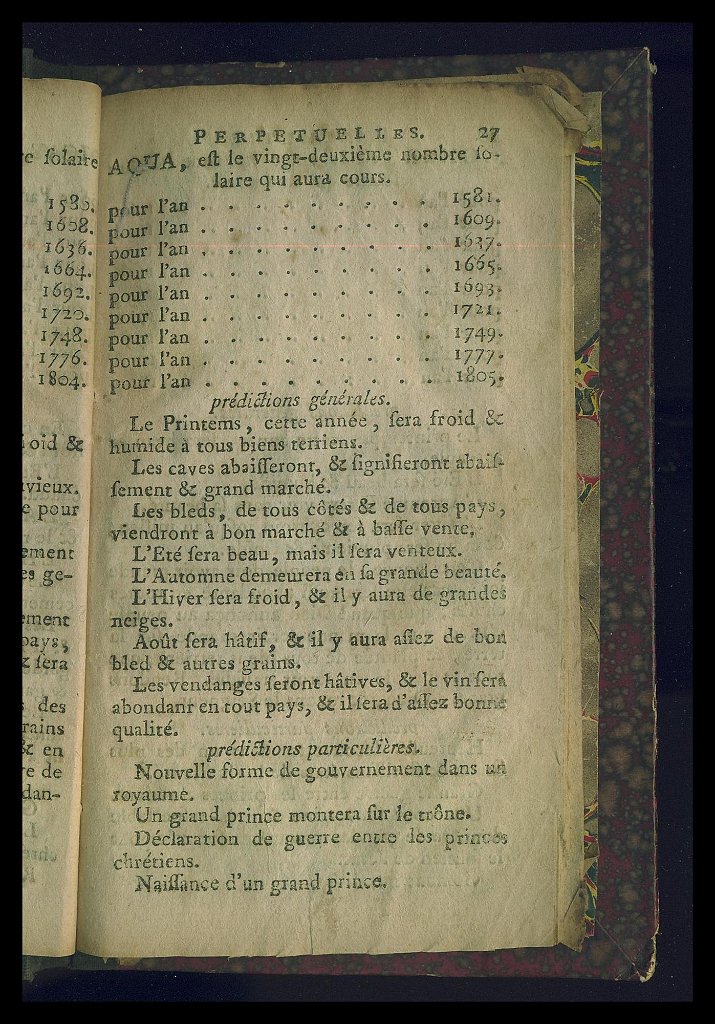 re ſolaire
1580.
1608.
1636.
1664.
1692.
1720.
1748.
1776.
1804.
oid &
vieux.
e pour
ement
es ge-
ement
pays,
& ſera
s des
rains
& en
re de
dan-
PERPETUELLES. 27
AQUA, eſt le vingt-deuxième nombre ſo-
laire qui aura cours.
pour l'an . . . . . . . . . 1581.
pour l'an . . . . . . . . . 1609.
pour l'an . . . . . . . . . 1637.
pour l'an . . . . . . . . . 1665.
pour l'an . . . . . . . . . 1693.
pour l'an . . . . . . . . . 1721.
pour l'an . . . . . . . . . 1749.
pour l'an . . . . . . . . . 1777.
pour l'an . . . . . . . . . 1805.
prédictions générales.
Le Printems, cette année, ſera froid &
humide à tous biens terriens.
Les caves abaiſſeront, & ſignifieront abaiſ-
ſement & grand marché.
Les bleds, de tous côtés & de tous pays,
viendront à bon marché & à baſſe vente.
L'Eté ſera beau, mais il ſera venteux.
L'Automne demeurera en ſa grande beauté.
L'Hiver ſera froid, & il y aura de grandes
neiges.
Août ſera hâtif, & il y aura aſſez de bon
bled & autres grains.
Les vendanges ſeront hâtives, & le vin ſera
abondant en tout pays, & il ſera d'aſſez bonne
qualité.
prédictions particulières.
Nouvelle forme de gouvernement dans un
royaume.
Un grand prince montera ſur le trône.
Déclaration de guerre entre les princes
chrétiens.
Naiſſance d'un grand prince.